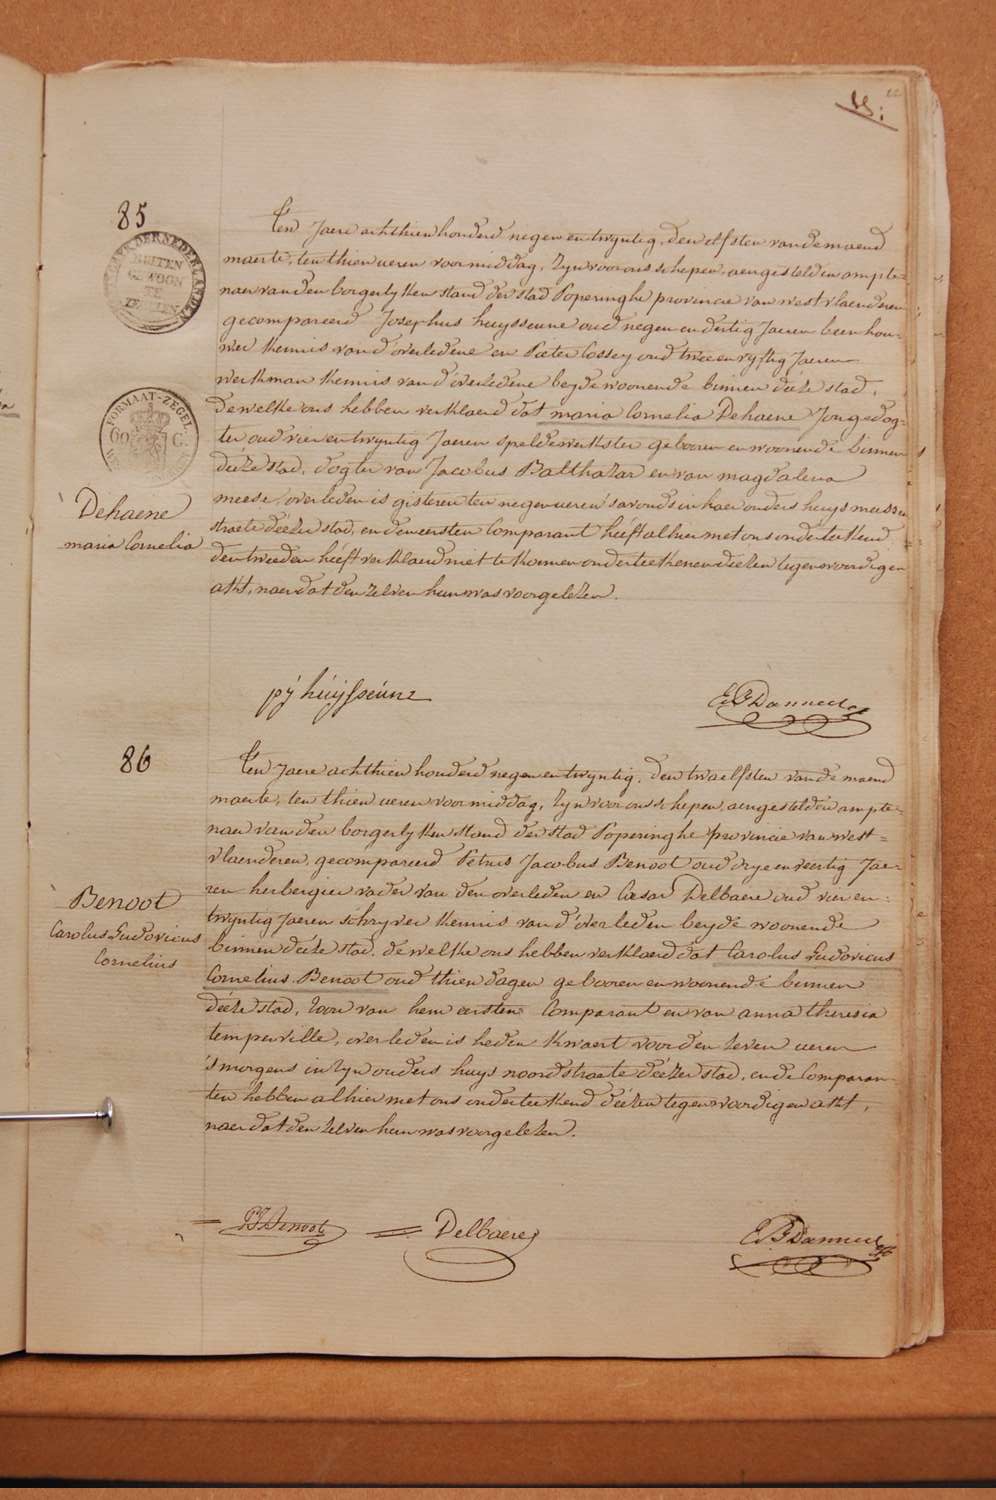 22
85
BUITEN
FORMAAT-ZEGEL
Dehaene
maria Cornelia
Ten Jaere achthien honderd negen en twyntig, den elfsten van de maend
maerte, ten thien ueren voormiddag, Zyn voor ons schepen, aengestelden ampte-
naer van den borgerlyken stand der stad Poperinghe provincie van westvlaenderen
gecompareerd Josephus huysseune oud negen en dertig Jaeren beenhou-
wer kennis van d'overledene en Pieter Cossey oud twee en vyftig Jaeren
werkman kennis van d'overledene beyde woonende binnen deéze stad,
dewelke ons hebben verklaerd dat maria Cornelia Dehaene Jonge dog-
ter oud vier en twyntig Jaeren speldewerkster gebooren en woonende binnen
deéze stad, dogter van Jacobus Balthazar en van magdalena
meese, overleden is gisteren ten negen ueren 's avonds in haer ouders huys meessen
straete déézer stad, en den eersten Comparant heéft alhier met ons onderteekend
den tweeden heéft verklaerd niet te konnen onderteekenen déézen tegenwoordigen
akt, naer dat den zelven hun was voorgelezen.
pj húÿsseúne
E B Danneel
86
Benoot
Carolus Ludovicus
Cornelius
Ten Jaere achthien honderd negen en twyntig, den twaelfsten van de maend
maerte, ten thien ueren voormiddag, Zyn voor ons schepen, aengestelden ampte-
naer van den borgerlyken stand der stad Poperinghe provincie van west-
vlaenderen, gecompareerd Petrus Jacobus Benoot oud drye en veertig Jae-
ren herbergier vader van den overleden en Cæsar Delbaere oud vier en-
twyntig Jaeren schryver kennis van d'overleden beyde woonende
binnen déeze stad, dewelke ons hebben verklaerd dat Carolus Ludovicus
Cornelius Benoot oud thien dagen gebooren en woonende binnen
déeze stad, Zoon van hem eersten Comparant en van anna theresia
temperville, overleden is heden kwaert voor den zeven ueren
's morgens in Zyn ouders huys noordstraete déézer stad, en de Comparan-
ten hebben alhier met ons onderteekend déézen tegenwoordigen akt,
naer dat den zelven hun was voorgelezen.
PJ Benoot
Delbaere
E B Danneel